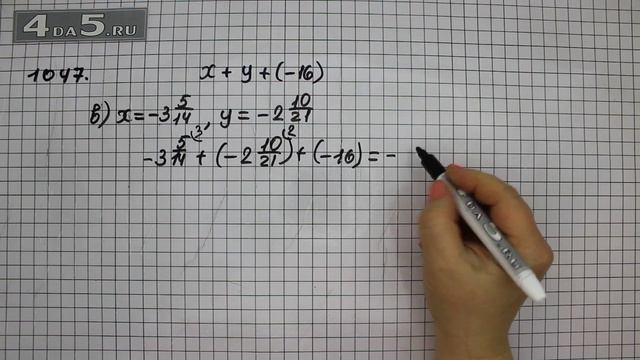 4DA5.RU
1047. x + y + (-16)
в) x = -3 5/14, y = -2 10/21
-3 5/14 (3 + (-2 10/21 (2) + (-16) = -